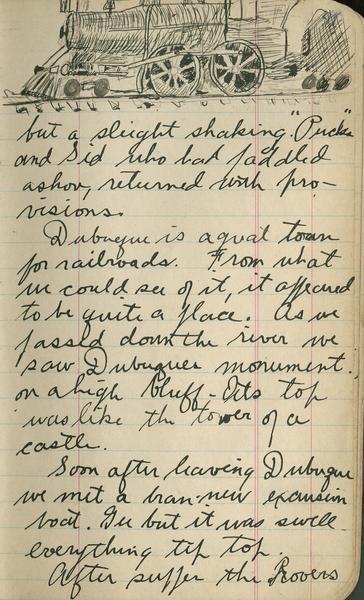 but a sleight shaking. "Puck"
and Sid who had paddled
ashor, returned with pro-
visions.
Dubuque is a great town
for railroads. From what
we could see of it, it appeared
to be quite a place. As we
passed down the river we
saw Dubuques monument.
on a high bluff - Its top
was like the tower of a
castle.
Soon after leaving Dubuque
we met a bran-new excursion
boat. Gee but it was swell -
everything tip top.
After supper the Rovers